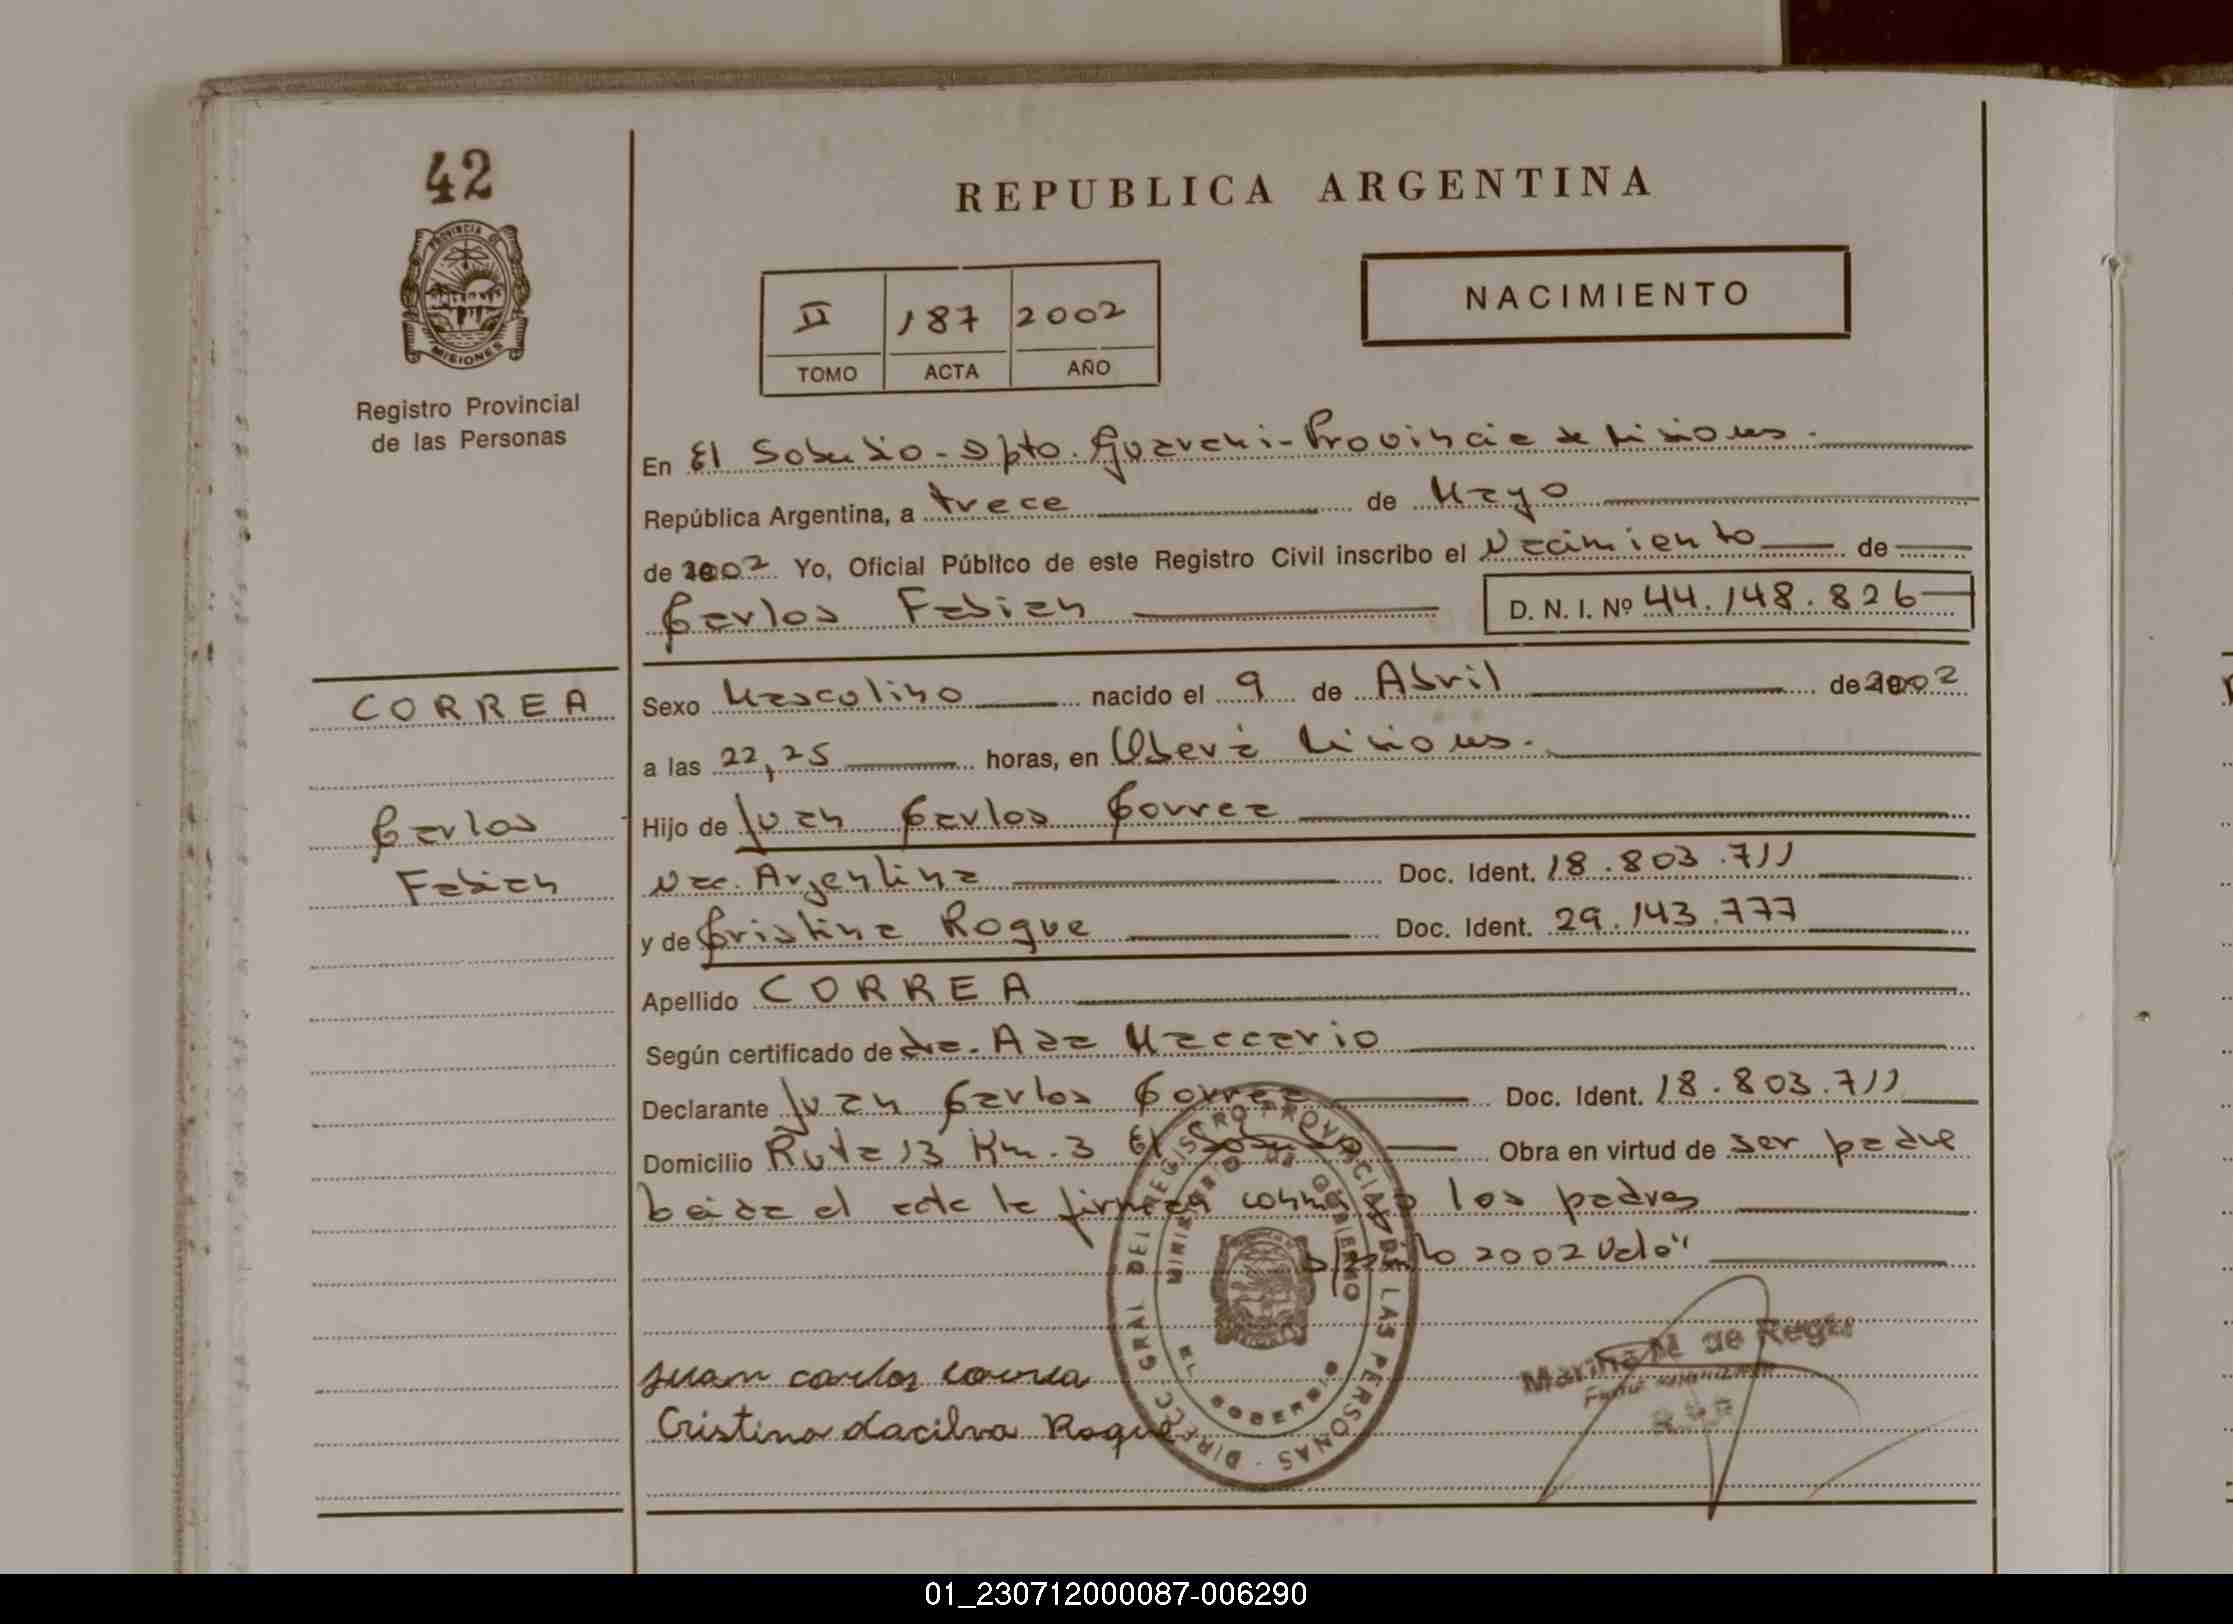 42
PROVINCIA DE
MISIONES
Registro Provincial
de las Personas
REPUBLICA ARGENTINA
II 187 2002
TOMO ACTA AÑO
NACIMIENTO
En El Soberbio - Dpto. Guarani - Provincia de Misiones.
República Argentina, a trece de Mayo
de 2002 Yo, Oficial Público de este Registro Civil inscribo el Nacimiento de
Carlos Fabian
D. N. I. Nº 44.148.826
CORREA
Carlos
Fabian
Sexo Masculino nacido el 9 de Abril de 2002
a las 22,25 horas, en Oberá Misiones.
Hijo de Juan Carlos Correa
Nac. Argentina Doc. Ident. 18.803.711
y de Cristina Roque Doc. Ident. 29.143.777
Apellido CORREA
Según certificado de dra. Ada Maccario
Declarante Juan Carlos Correa Doc. Ident. 18.803.711
Domicilio Ruta 13 Km. 3 El Soberbio Obra en virtud de ser padre
leida el acta la firman conmigo los padres
2002 Vale"
Juan carlos correa
Cristina dacilva Roque
DIRECC GRAL DEL REGISTRO PROVINCIAL DE LAS PERSONAS
MINISTERIO DE GOBIERNO
EL SOBERBIO
Marina M. de Reg
01_230712000087-006290